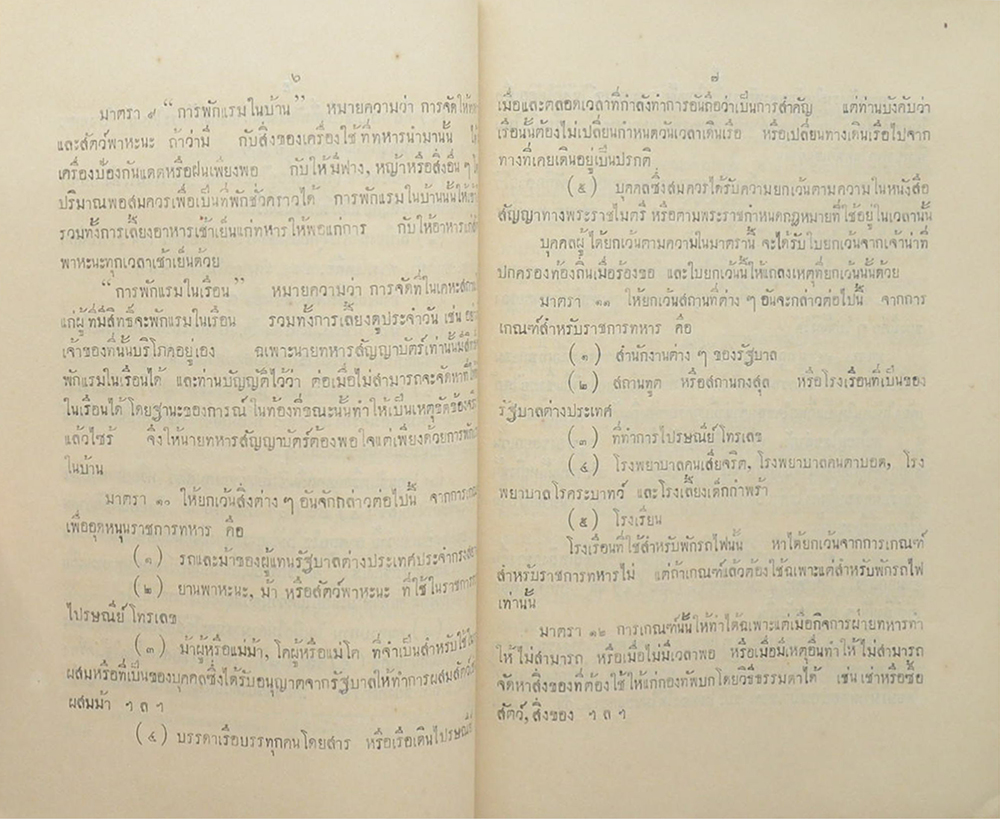 ๖
มาตรา ๙ “ การพักแรมในบ้าน ” หมายความว่า การจัดให้
และสัตว์พาหะนะ ถ้าว่ามี กับสิ่งของเครื่องใช้ที่ทหารนำมานั้น
เครื่องป้องกันแดดหรือฝนเพียงพอ กับให้มีฟาง, หญ้าหรือสิ่งอื่น ๆ
ปริมาณพอสมควรเพื่อเป็นที่พักชั่วคราวได้ การพักแรมในบ้านนั้นให้
รวมทั้งการเลี้ยงอาหารเช้าเย็นแก่ทหารให้พอแก่การ กับให้อาหารแก่
พาหะนะทุกเวลาเช้าเย็นด้วย
“ การพักแรมในเรือน ” หมายความว่า การจัดที่ในเคหะสถาน
แก่ผู้ที่มีสิทธิ์จะพักแรมในเรือน รวมทั้งการเลี้ยงดูประจำวัน เช่น
เจ้าของที่นั้นบริโภคอยู่เอง ฉเพาะนายทหารสัญญาบัตร์เท่านั้นมีสิทธิ
พักแรมในเรือนได้ และท่านบัญญัติไว้ว่า ต่อเมื่อไม่สามารถจะจัดหาที่
ในเรือนได้ โดยฐานะของการณ์ ในท้องที่ขณะนั้นทำให้เป็นเหตุขัดข้อง
แล้วไซร้ จึงให้นายทหารสัญญาบัตร์ต้องพอใจแต่เพียงด้วยการพัก
ในบ้าน
มาตรา ๑๐ ให้ยกเว้นสิ่งต่าง ๆ อันจักกล่าวต่อไปนี้ จากการเกณ
เพื่ออุดหนุนราชการทหาร คือ
( ๑ ) รถและม้าของผู้แทนรัฐบาลต่างประเทศประจำกรุง
( ๒ ) ยานพาหะนะ, ม้า หรือสัตว์พาหะนะ ที่ใช้ในราชการ
ไปรษณีย์ โทรเลข
( ๓ ) ม้าผู้หรือแม่ม้า, โคผู้หรือแม่โค ที่จำเป็นสำหรับใช้
ผสมหรือที่เป็นของบุคคลซึ่งได้รับอนุญาตจากรัฐบาลให้ทำการผสมสัตว์
ผสมม้า ฯ ล ฯ
( ๔ ) บรรดาเรือบรรทุกคนโดยสาร หรือเรือเดินไปรษณีย์
๗
เมื่อและตลอดเวลาที่กำลังทำการอันถือว่าเป็นการสำคัญ แต่ท่านบังคับว่า
เรือนั้นต้องไม่เปลี่ยนกำหนดวันเวลาเดินเรือ หรือเปลี่ยนทางเดินเรือไปจาก
ทางที่เคยเดินอยู่เป็นปรกติ
( ๕ ) บุคคลซึ่งสมควรได้รับความยกเว้นตามความในหนังสือ
สัญญาทางพระราชไมตรี หรือตามพระราชกำหนดกฎหมายที่ใช้อยู่ในเวลานั้น
บุคคลผู้ได้ยกเว้นตามความในมาตรานี้ จะได้รับใบยกเว้นจากเจ้าน่าที่
ปกครองท้องถิ่นเมื่อร้องขอ และใบยกเว้นนี้ให้แถลงเหตุที่ยกเว้นนั้นด้วย
มาตรา ๑๑ ให้ยกเว้นสถานที่ต่าง ๆ อันจะกล่าวต่อไปนี้ จากการ
เกณฑ์สำหรับราชการทหาร คือ
( ๑ ) สำนักงานต่าง ๆ ของรัฐบาล
( ๒ ) สถานทูต หรือสถานกงสุล หรือโรงเรือนที่เป็นของ
รัฐบาลต่างประเทศ
( ๓ ) ที่ทำการไปรษณีย์ โทรเลข
( ๔ ) โรงพยาบาลคนเสียจริต, โรงพยาบาลคนตาบอด, โรง
พยาบาลโรคระบาทว์ และโรงเลี้ยงเด็กกำพร้า
( ๕ ) โรงเรียน
โรงเรือนที่ใช้สำหรับพักรถไฟนั้น หาได้ยกเว้นจากการเกณฑ์
สำหรับราชการทหารไม่ แต่ถ้าเกณฑ์แล้วต้องใช้ฉเพาะแต่สำหรับพักรถไฟ
เท่านั้น
มาตรา ๑๒ การเกณฑ์นั้นให้ทำได้ฉเพาะแต่เมื่อกิจการฝ่ายทหารทำ
ให้ไม่สามารถ หรือเมื่อไม่มีเวลาพอ หรือเมื่อมีเหตุอื่นทำให้ไม่สามารถ
จัดหาสิ่งของที่ต้องใช้ให้แก่กองทัพบกโดยวิธีธรรมดาได้ เช่นเช่าหรือซื้อ
สัตว์, สิ่งของ ฯ ล ฯ